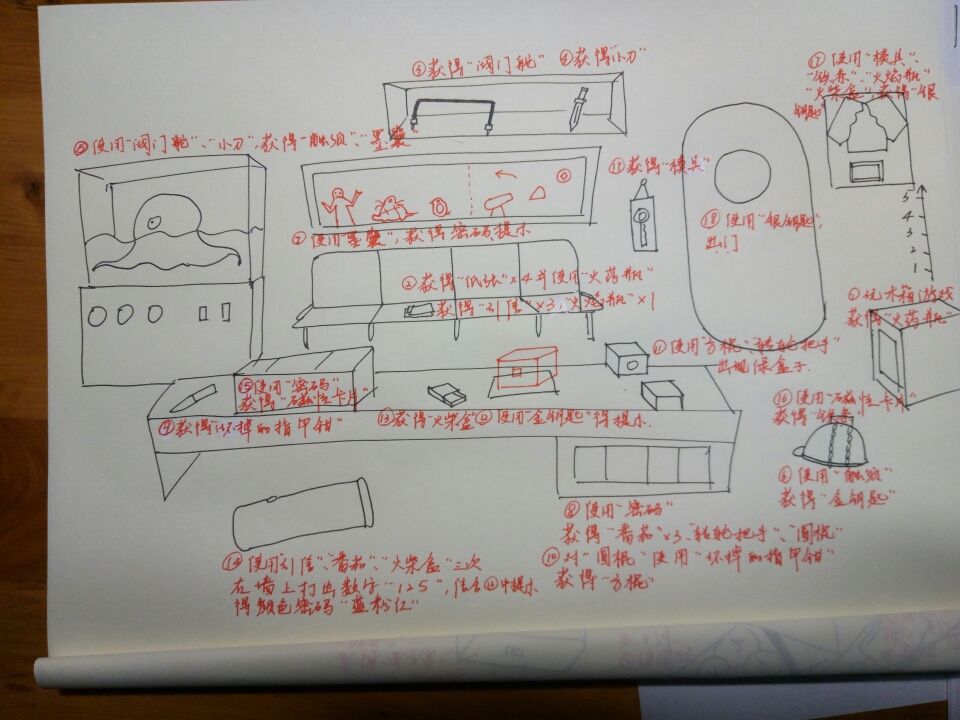 ③获得“阀门舵” ④获得“小刀”
⑰使用“模具”、
“铁条”、“火焰瓶”
“火柴盒”，获得“银
钥匙”
⑤使用“阀门舵”、“小刀”，获得“触须”、“墨囊”
⑪获得“模具”
⑦使用“墨囊”，获得密码提示
⑱使用“银钥匙”，
出门
5
4
3
2
1
②获得“纸张”×4并使用“火药瓶”
获得“引信”×3、“火焰瓶”×1
①玩木箱游戏
获得“火药瓶”
⑪使用“方棍”、“转轮把手”
出现绿盒子.
⑮使用“密码”
获得“石磁性卡片”
⑯使用“石磁性卡片”
获得“铁条”
⑨获得“坏掉的指甲钳”
⑬获得“火柴盒”⑫使用“金钥匙”得提示.
⑥使用“触须”
获得“金钥匙”
⑧使用“密码”
获得“番茄”×3、“转轮把手”、“圆棍”
⑩对“圆棍”使用“坏掉的指甲钳”
获得“方棍”
⑭使用“引信”、“番茄”、“火柴盒”三次
在墙上打出数字“125”，结合⑫中提示
得颜色密码“蓝粉红”